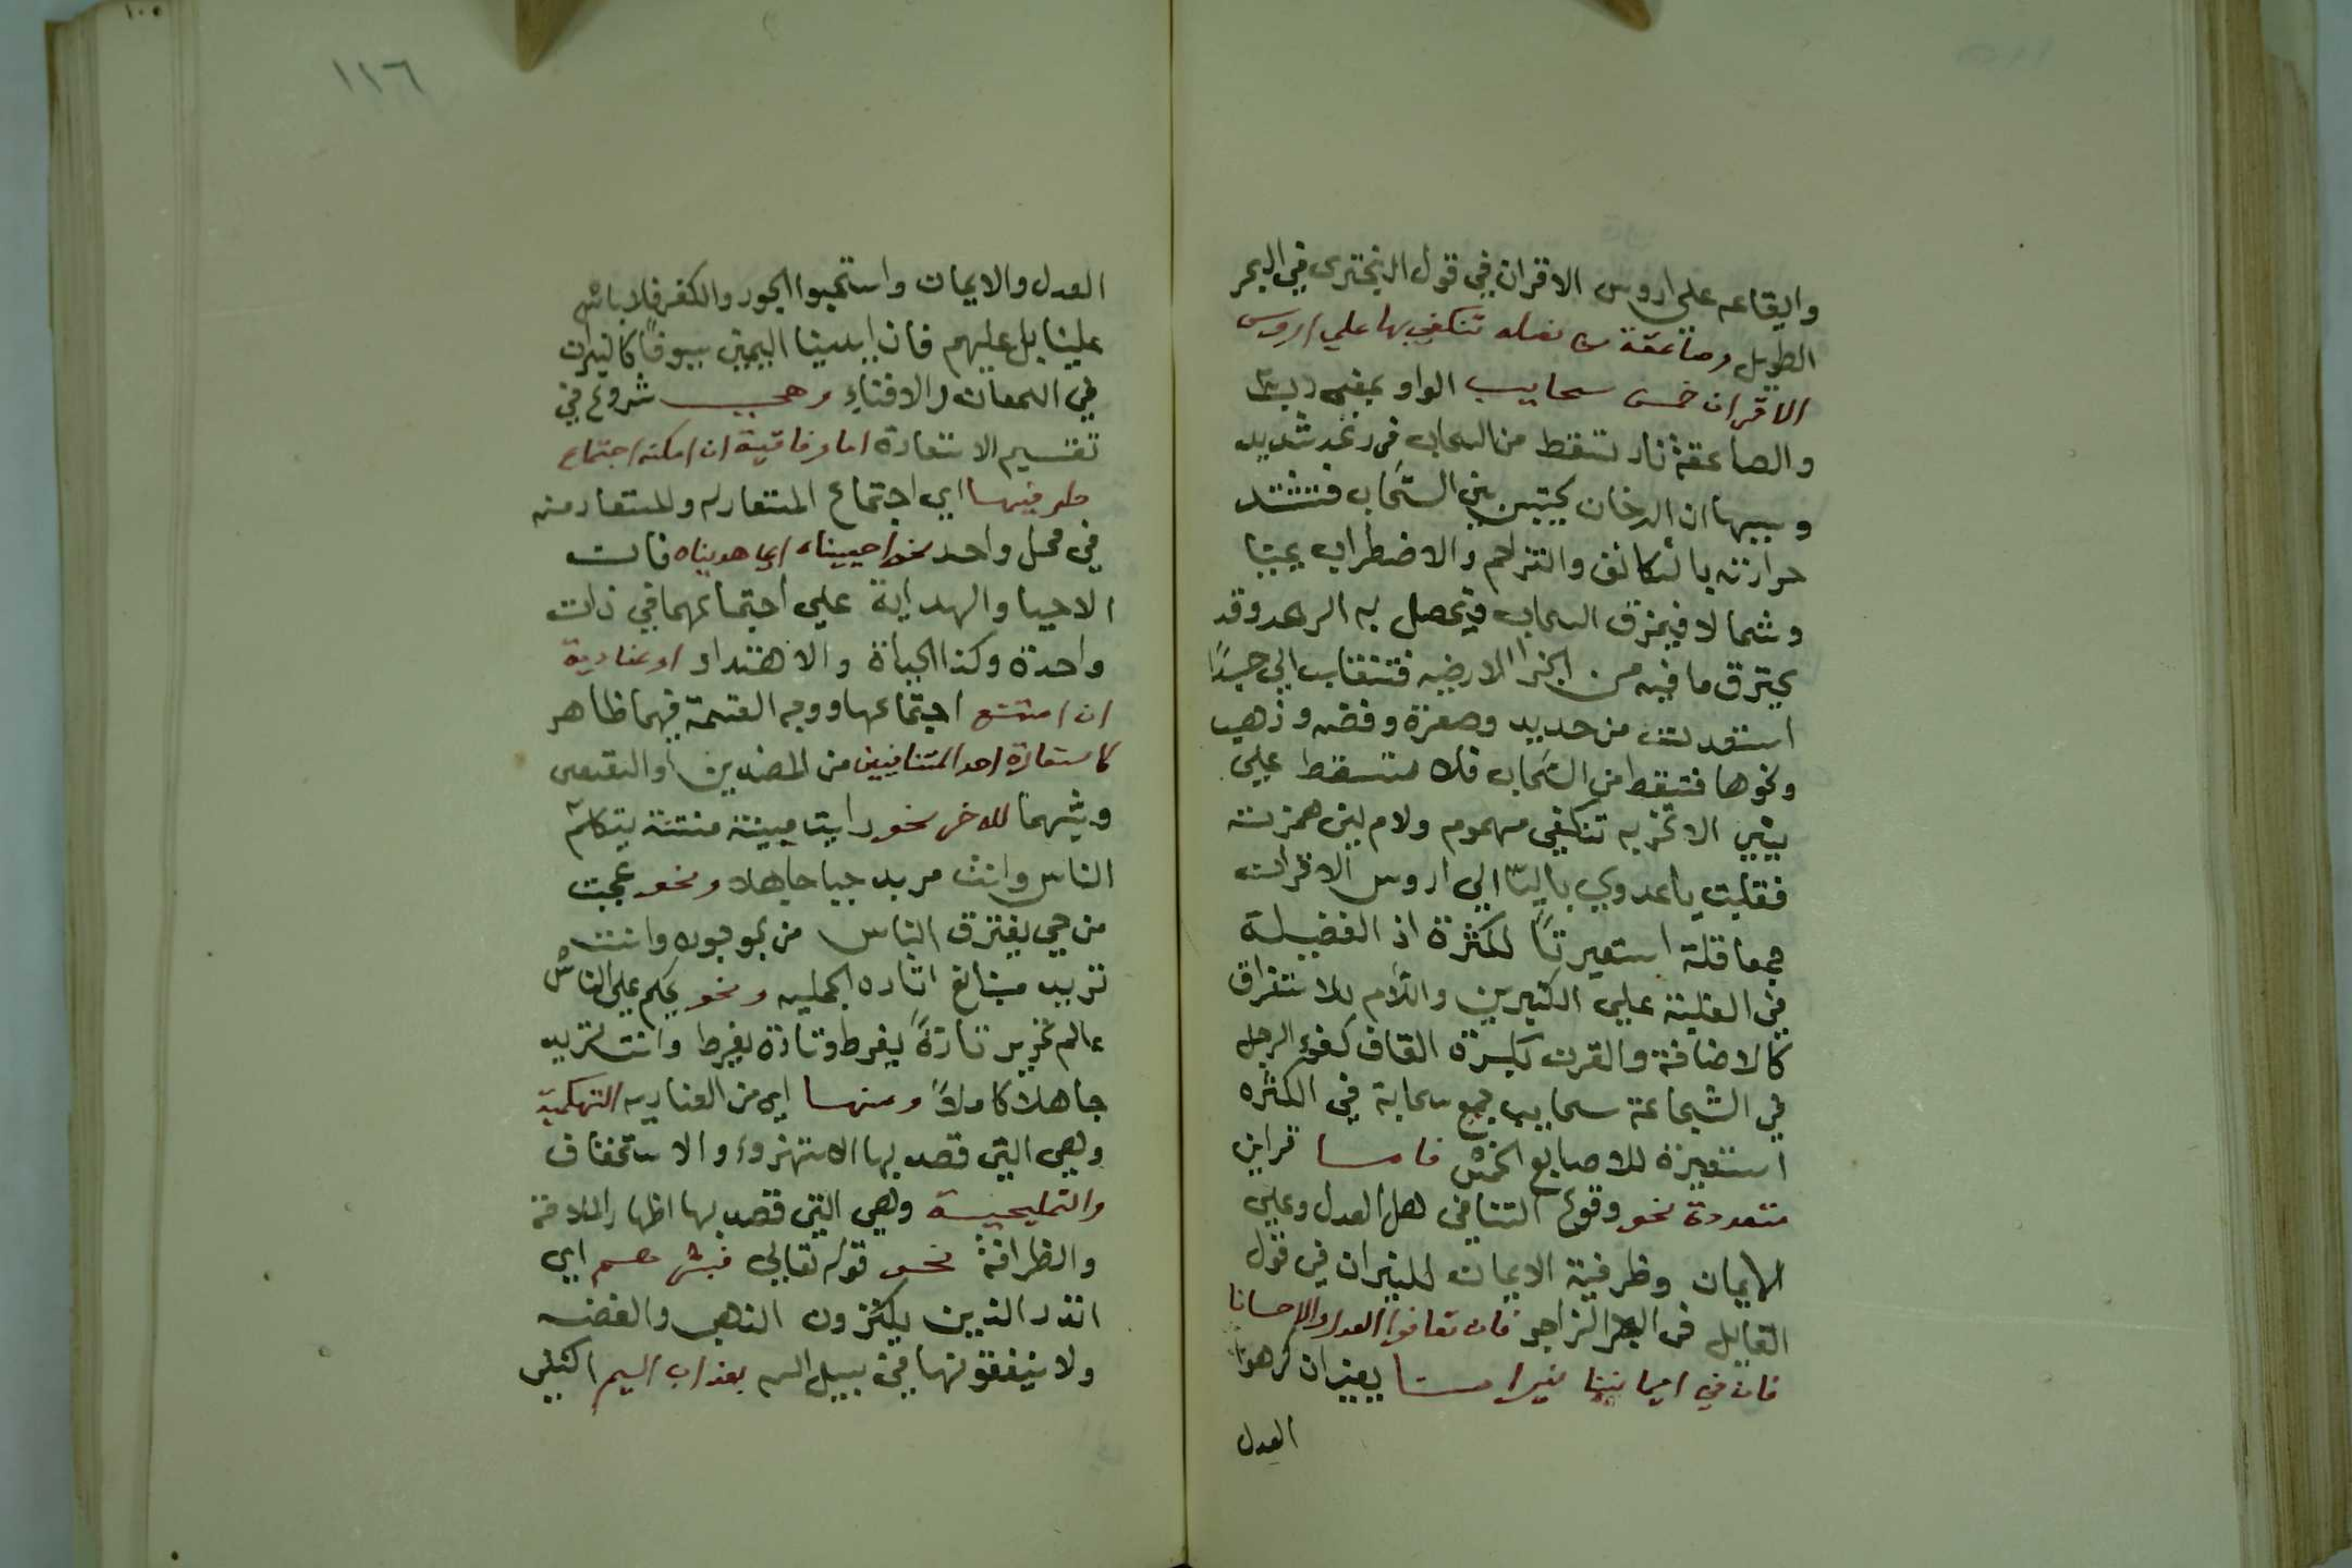 وايقاعه على اروس الاقران في قول البحتري في البحر
الطويل وصاعقة من نصله تنكفي بها علي اروس
الاقران خمس سحايب الواو بمعني رب
والصاعقة نار تسقط من السحاب في رعد شديد
وسببها ان الدخان يحتبس بين السحاب فتشتد
حرارته بالتكاثف والتزاحم والاضطراب يمينا
وشمالا فيمزق السحاب فيحصل به الرعد وقد
يحترق ما فيه من الاجزا الارضيه فتنقلب الي
من حديد وصفرة وفضه وذهب
ونحوها فتسقط من السحاب فلا تسقط علي
الا تخربه تنكفي مهموم ولام لين همزته
فقلبت يا عدي بالبا الي اروس الاقران
جمعا قلة استعيرتا للكثرة اذ الفضيلة
في الغلبة علي الكثيرين واللام للاستغراق
كالاضافة والقرن بكسرة القاف كفو الرجل
في الشجاعة سحايب جمع سحابة في الكثره
استعيرة للاصابع الخمس قراين
متعددة نحو وقوع التنافي العدل وعلي
الايمان وظرفية الايمان للنيران في قول
القايل في البحر الراجز فان تعافوا العدل والاحسانا
فان في ايماننا نيرانا كرهوا
العدل
١١٦
العدل والايمان واستحبوا الجور والكفر فلا باس
علينا بل عليهم فان ايدينا اليمين سيوفا كالنيران
في اللمعان والافناء وهي شروع في
تقسيم الاستعارة اما وفاقية ان امكن اجتماع
طرفيها اي اجتماع المستعار له والمستعار منه
في محل واحد نحو احييناه اي هديناه فان
الاحيا والهداية علي اجتماعهما في ذات
واحدة وكذا الحياة والاهتداء او عنادية
ان امتنع اجتماعها ووجه القسمة فيهما ظاهر
كاستعارة احد المتنافيين من الضدين او النقيضين
وشبههما للاخر نحو رايت ميتة منتنة يتكلم
الناس وانت مريد حيا جاهلا ونحو عجبت
من حي يفترق الناس من موجوده وانت
تريد اثاره الجمليه ونحو يحكم علي الناس
عالم نحرير تارة يفرط وتارة يفرط وانت تريد
جاهلا كاملا ومنها اي من العناديه التهكمية
وهي التي قصد بها الاستهزوء والاستخفاف
والتمليحية وهي التي قصد بها اظهار الملاحة
والظرافة نحو قوله تعالي فبشرهم اي
انذر الذين يكنزون الذهب والفضه
ولا ينفقونها في سبيل الله بعذاب اليم